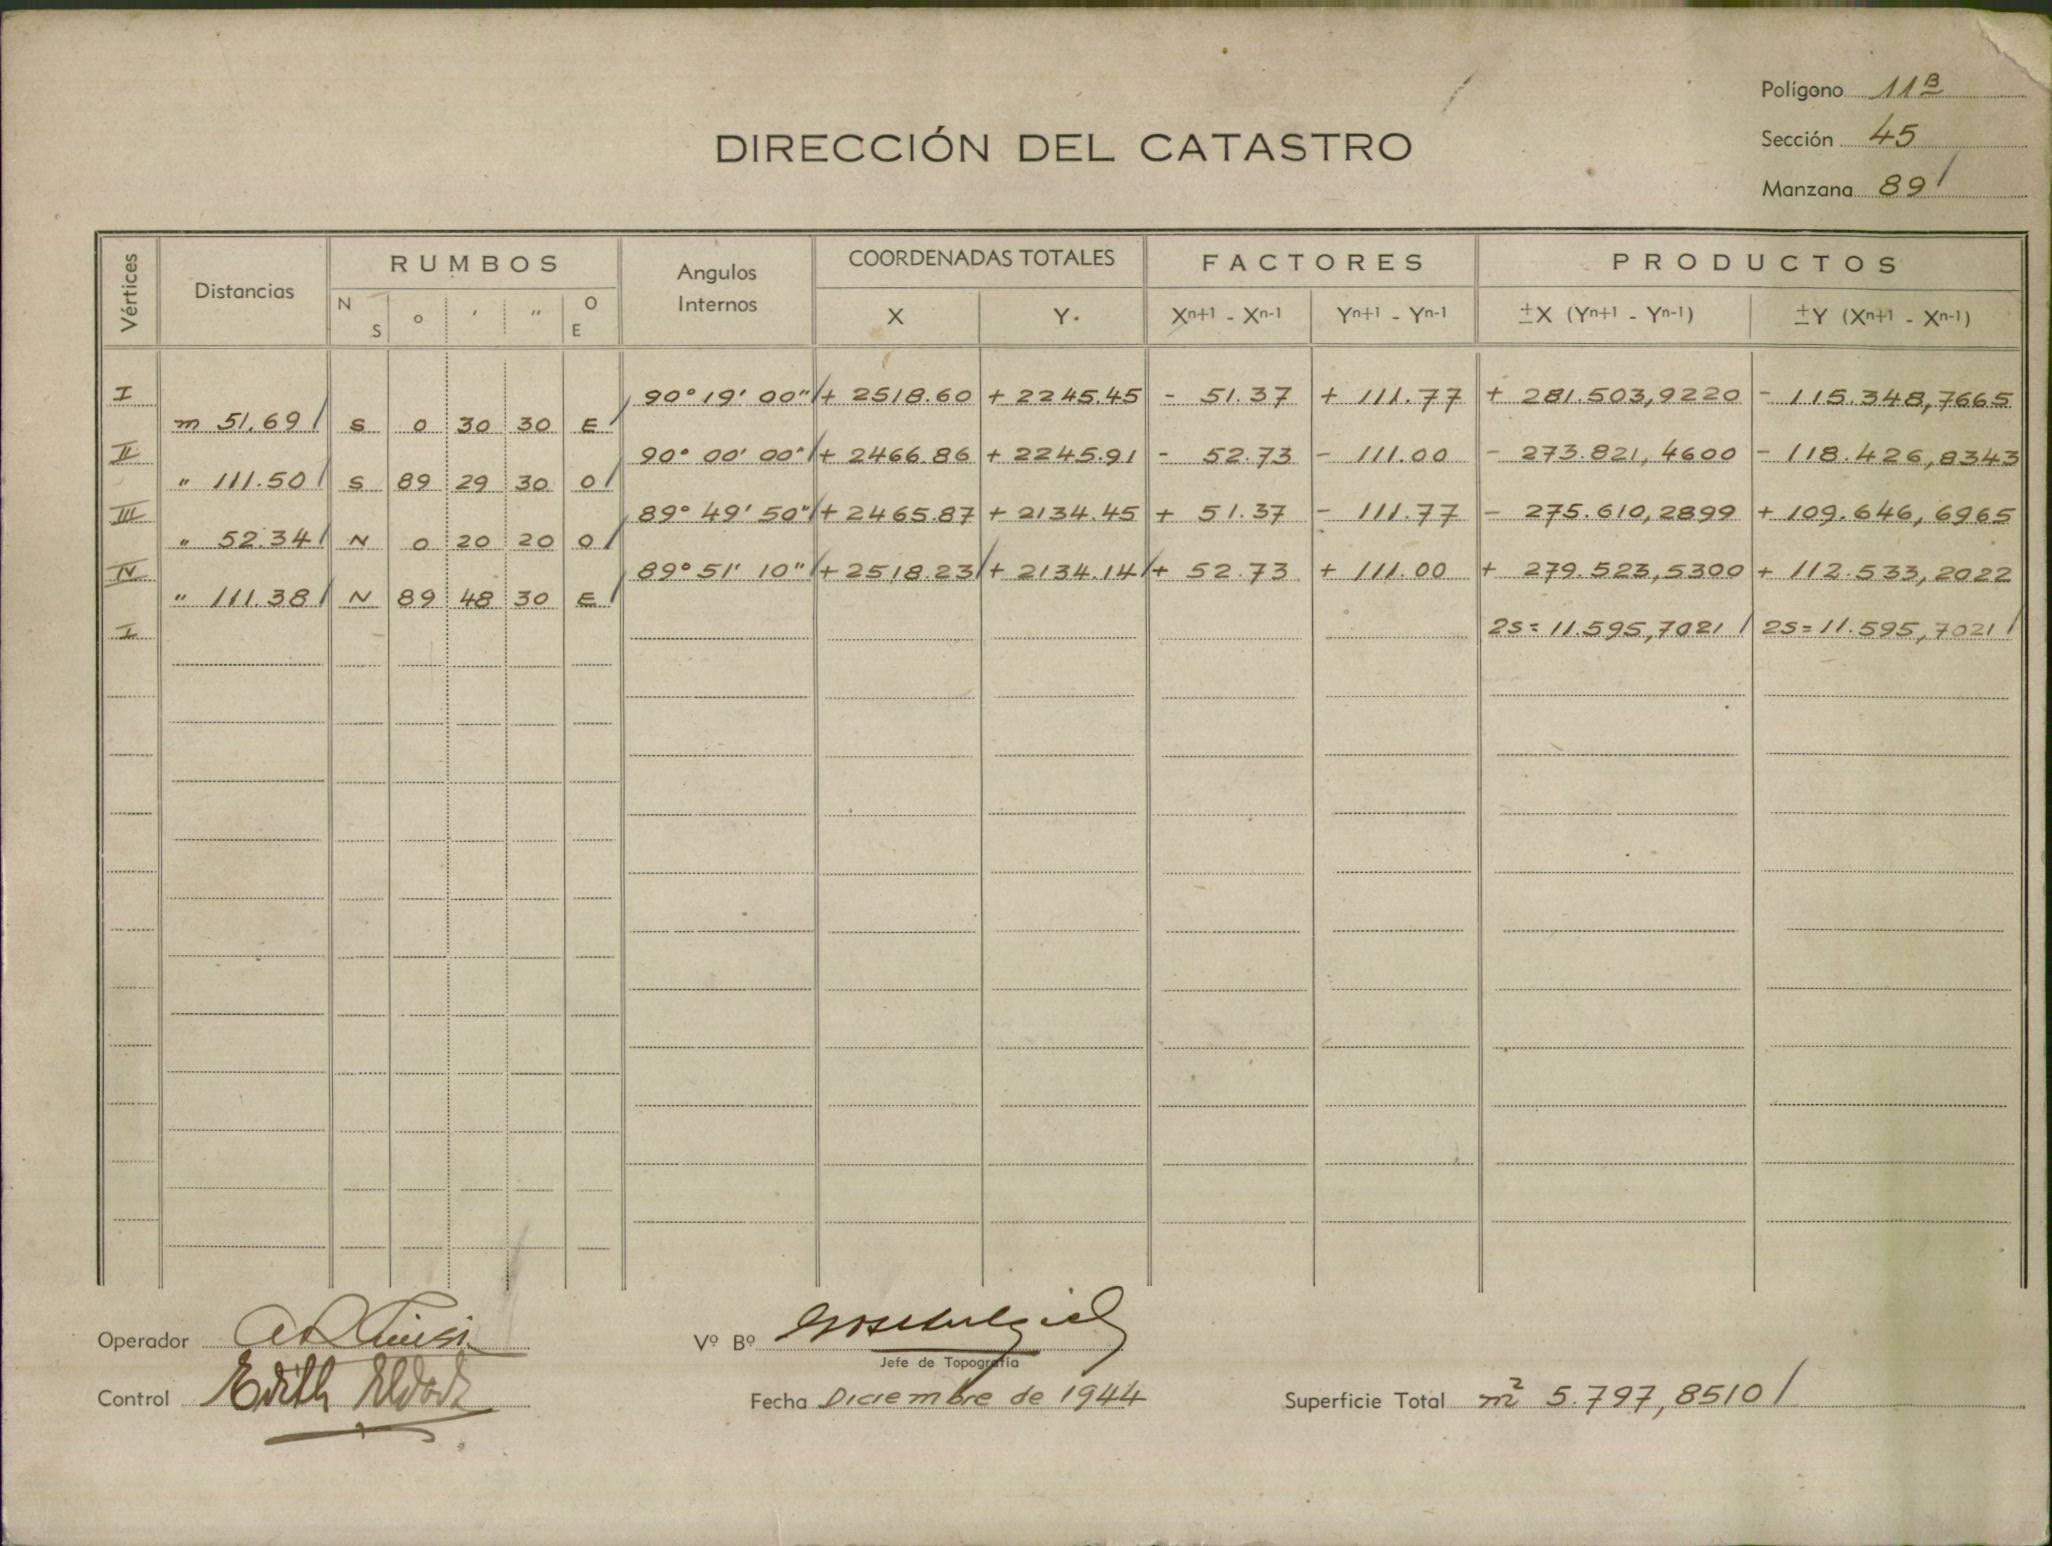 Polígono 11B
Sección 45
Manzana 89
DIRECCIÓN DEL CATASTRO
Vértices Distancias RUMBOS Angulos Internos COORDENADAS TOTALES FACTORES PRODUCTOS
N S o ′ ″ O E X Y. Xn+1 - Xn-1 Yn+1 - Yn-1 ±X (Yn+1 - Yn-1) ±Y (Xn+1 - Xn-1)
I 90° 19' 00" + 2518.60 + 2245.45 - 51.37 + 111.77 + 281.503,9220 - 115.348,7665
m 51.69 S 0 30 30 E
II 90° 00' 00" + 2466.86 + 2245.91 - 52.73 - 111.00 - 273.821,4600 - 118.426,8343
" 111.50 S 89 29 30 O
III 89° 49' 50" + 2465.87 + 2134.45 + 51.37 - 111.77 - 275.610,2899 + 109.646,6965
" 52.34 N 0 20 20 O
IV 89° 51' 10" + 2518.23 + 2134.14 + 52.73 + 111.00 + 279.523,5300 + 112.533,2022
" 111.38 N 89 48 30 E
I 2S = 11.595,7021 2S = 11.595,7021
Operador
Vº Bº
Jefe de Topografía
Control Edith
Fecha Diciembre de 1944
Superficie Total m² 5.797,8510